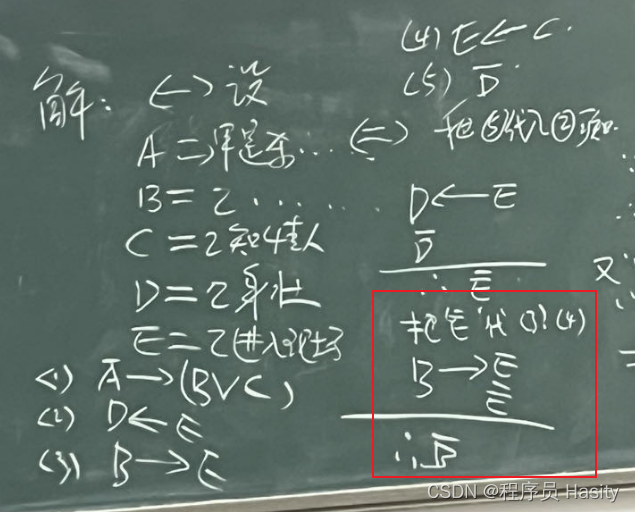 解: (一) 设
A = 甲是杀...
B = 乙......
C = 乙知情人
D = 乙身壮
E = 乙进入现场
(1) Ā→(B∨C)
(2) D←E
(3) B→E
(4) E←C.
(5) D̄
(二) 把⑤代入②知
D←E
D̄
∴ Ē
把'Ē'代(3)(4)
B→E
Ē
∴ B̄
又
CSDN @程序员 Hasity